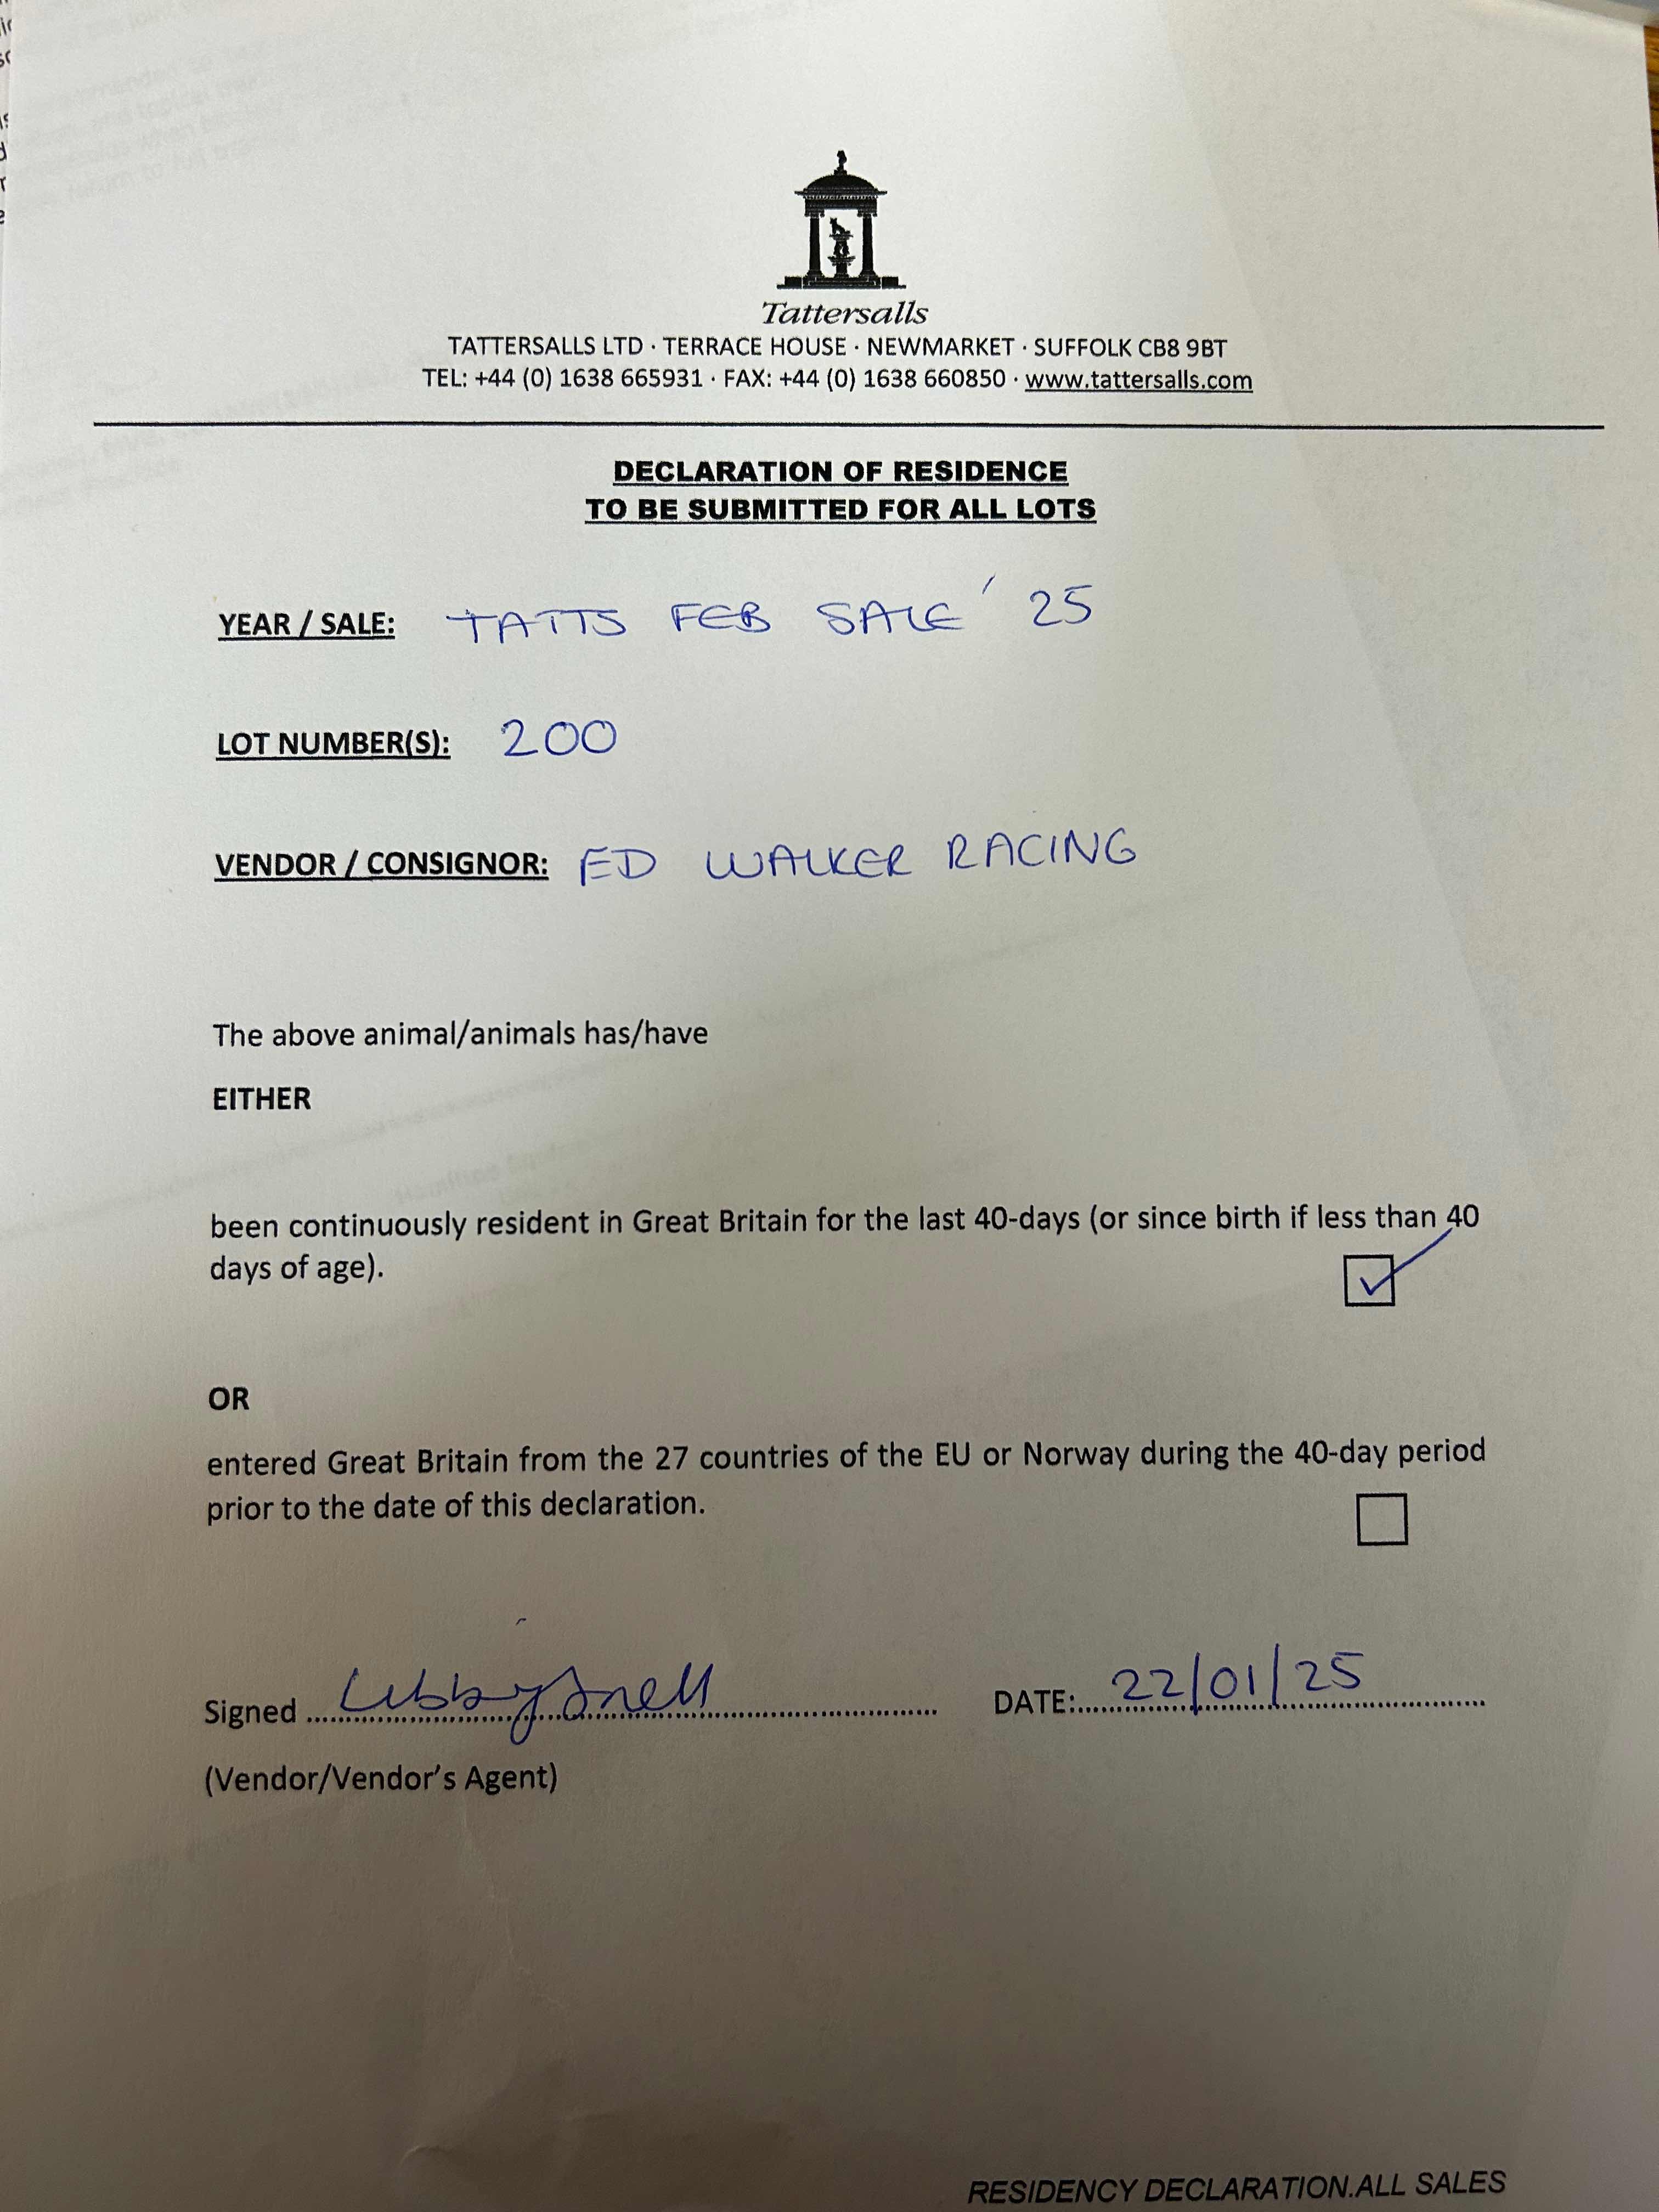 Tattersalls
TATTERSALLS LTD · TERRACE HOUSE · NEWMARKET · SUFFOLK CB8 9BT
TEL: +44 (0) 1638 665931 · FAX: +44 (0) 1638 660850 · www.tattersalls.com
DECLARATION OF RESIDENCE
TO BE SUBMITTED FOR ALL LOTS
YEAR / SALE: TATTS FEB SALE ' 25
LOT NUMBER(S): 200
VENDOR / CONSIGNOR: ED WALKER RACING
The above animal/animals has/have
EITHER
been continuously resident in Great Britain for the last 40-days (or since birth if less than 40
days of age).
OR
entered Great Britain from the 27 countries of the EU or Norway during the 40-day period
prior to the date of this declaration.
Signed Libby Snell DATE: 22/01/25
(Vendor/Vendor's Agent)
RESIDENCY DECLARATION.ALL SALES